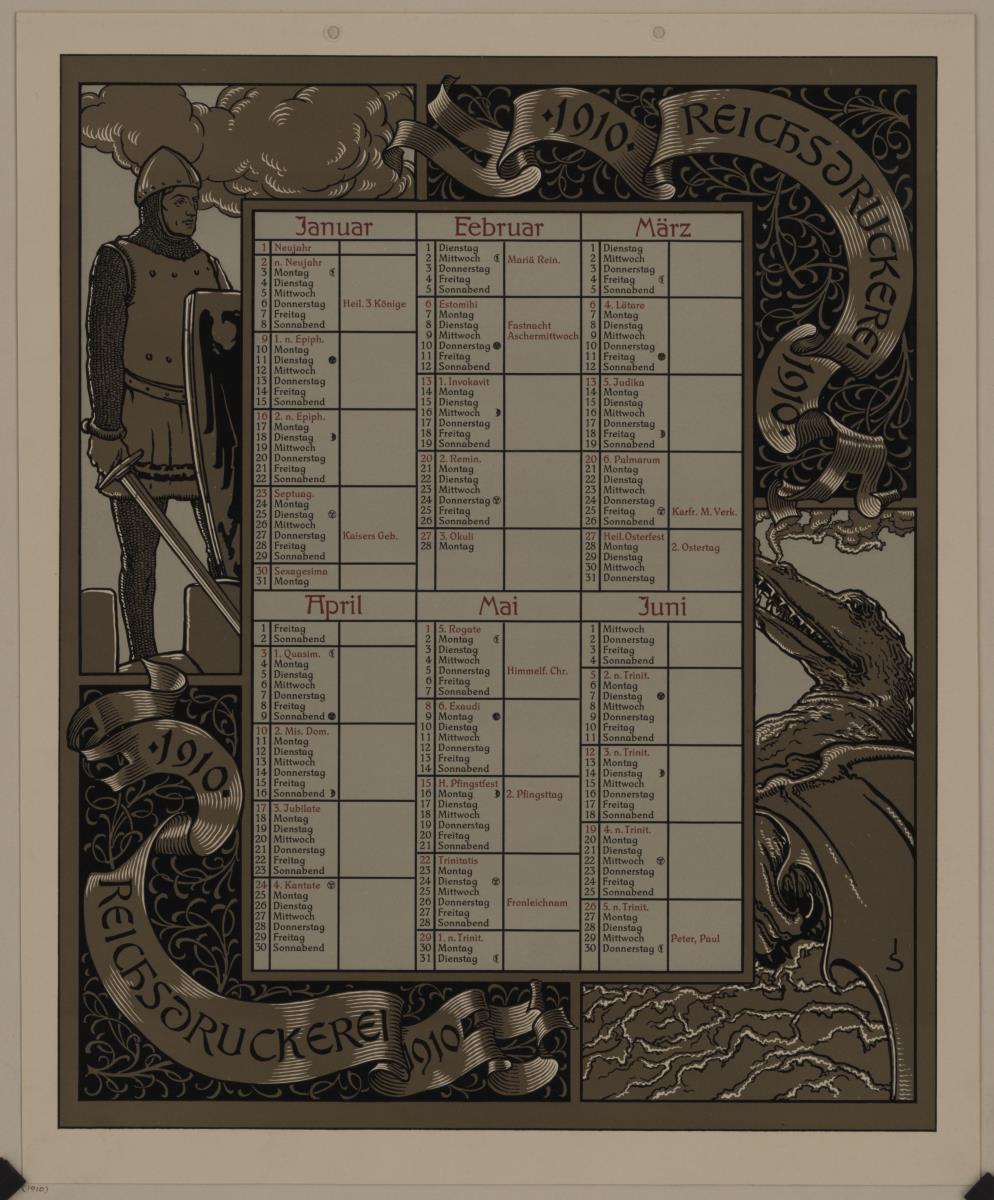 ·1910·
REICHSDRUCKEREI
1910·
Januar
1 Neujahr
2 n. Neujahr
3 Montag
4 Dienstag
5 Mittwoch
6 Donnerstag Heil. 3 Könige
7 Freitag
8 Sonnabend
9 1. n. Epiph.
10 Montag
11 Dienstag
12 Mittwoch
13 Donnerstag
14 Freitag
15 Sonnabend
16 2. n. Epiph.
17 Montag
18 Dienstag
19 Mittwoch
20 Donnerstag
21 Freitag
22 Sonnabend
23 Septuag.
24 Montag
25 Dienstag
26 Mittwoch
27 Donnerstag Kaisers Geb.
28 Freitag
29 Sonnabend
30 Sexagesima
31 Montag
Februar
1 Dienstag
2 Mittwoch Mariä Rein.
3 Donnerstag
4 Freitag
5 Sonnabend
6 Estomihi
7 Montag
8 Dienstag Fastnacht
9 Mittwoch Aschermittwoch
10 Donnerstag
11 Freitag
12 Sonnabend
13 1. Invokavit
14 Montag
15 Dienstag
16 Mittwoch
17 Donnerstag
18 Freitag
19 Sonnabend
20 2. Remin.
21 Montag
22 Dienstag
23 Mittwoch
24 Donnerstag
25 Freitag
26 Sonnabend
27 3. Okuli
28 Montag
März
1 Dienstag
2 Mittwoch
3 Donnerstag
4 Freitag
5 Sonnabend
6 4. Lätare
7 Montag
8 Dienstag
9 Mittwoch
10 Donnerstag
11 Freitag
12 Sonnabend
13 5. Judika
14 Montag
15 Dienstag
16 Mittwoch
17 Donnerstag
18 Freitag
19 Sonnabend
20 6. Palmarum
21 Montag
22 Dienstag
23 Mittwoch
24 Donnerstag
25 Freitag Karfr. M. Verk.
26 Sonnabend
27 Heil. Osterfest
28 Montag 2. Ostertag
29 Dienstag
30 Mittwoch
31 Donnerstag
April
1 Freitag
2 Sonnabend
3 1. Quasim.
4 Montag
5 Dienstag
6 Mittwoch
7 Donnerstag
8 Freitag
9 Sonnabend
10 2. Mis. Dom.
11 Montag
12 Dienstag
13 Mittwoch
14 Donnerstag
15 Freitag
16 Sonnabend
17 3. Jubilate
18 Montag
19 Dienstag
20 Mittwoch
21 Donnerstag
22 Freitag
23 Sonnabend
24 4. Kantate
25 Montag
26 Dienstag
27 Mittwoch
28 Donnerstag
29 Freitag
30 Sonnabend
Mai
1 5. Rogate
2 Montag
3 Dienstag
4 Mittwoch
5 Donnerstag Himmelf. Chr.
6 Freitag
7 Sonnabend
8 6. Exaudi
9 Montag
10 Dienstag
11 Mittwoch
12 Donnerstag
13 Freitag
14 Sonnabend
15 H. Pfingstfest
16 Montag 2. Pfingsttag
17 Dienstag
18 Mittwoch
19 Donnerstag
20 Freitag
21 Sonnabend
22 Trinitatis
23 Montag
24 Dienstag
25 Mittwoch
26 Donnerstag Fronleichnam
27 Freitag
28 Sonnabend
29 1. n. Trinit.
30 Montag
31 Dienstag
Juni
1 Mittwoch
2 Donnerstag
3 Freitag
4 Sonnabend
5 2. n. Trinit.
6 Montag
7 Dienstag
8 Mittwoch
9 Donnerstag
10 Freitag
11 Sonnabend
12 3. n. Trinit.
13 Montag
14 Dienstag
15 Mittwoch
16 Donnerstag
17 Freitag
18 Sonnabend
19 4. n. Trinit.
20 Montag
21 Dienstag
22 Mittwoch
23 Donnerstag
24 Freitag
25 Sonnabend
26 5. n. Trinit.
27 Montag
28 Dienstag
29 Mittwoch Peter, Paul
30 Donnerstag
·1910·
REICHSDRUCKEREI
1910
JS
(1910)